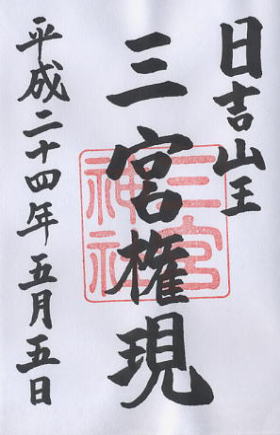 日吉山王
三宮権現
三宮神社
平成二十四年五月五日